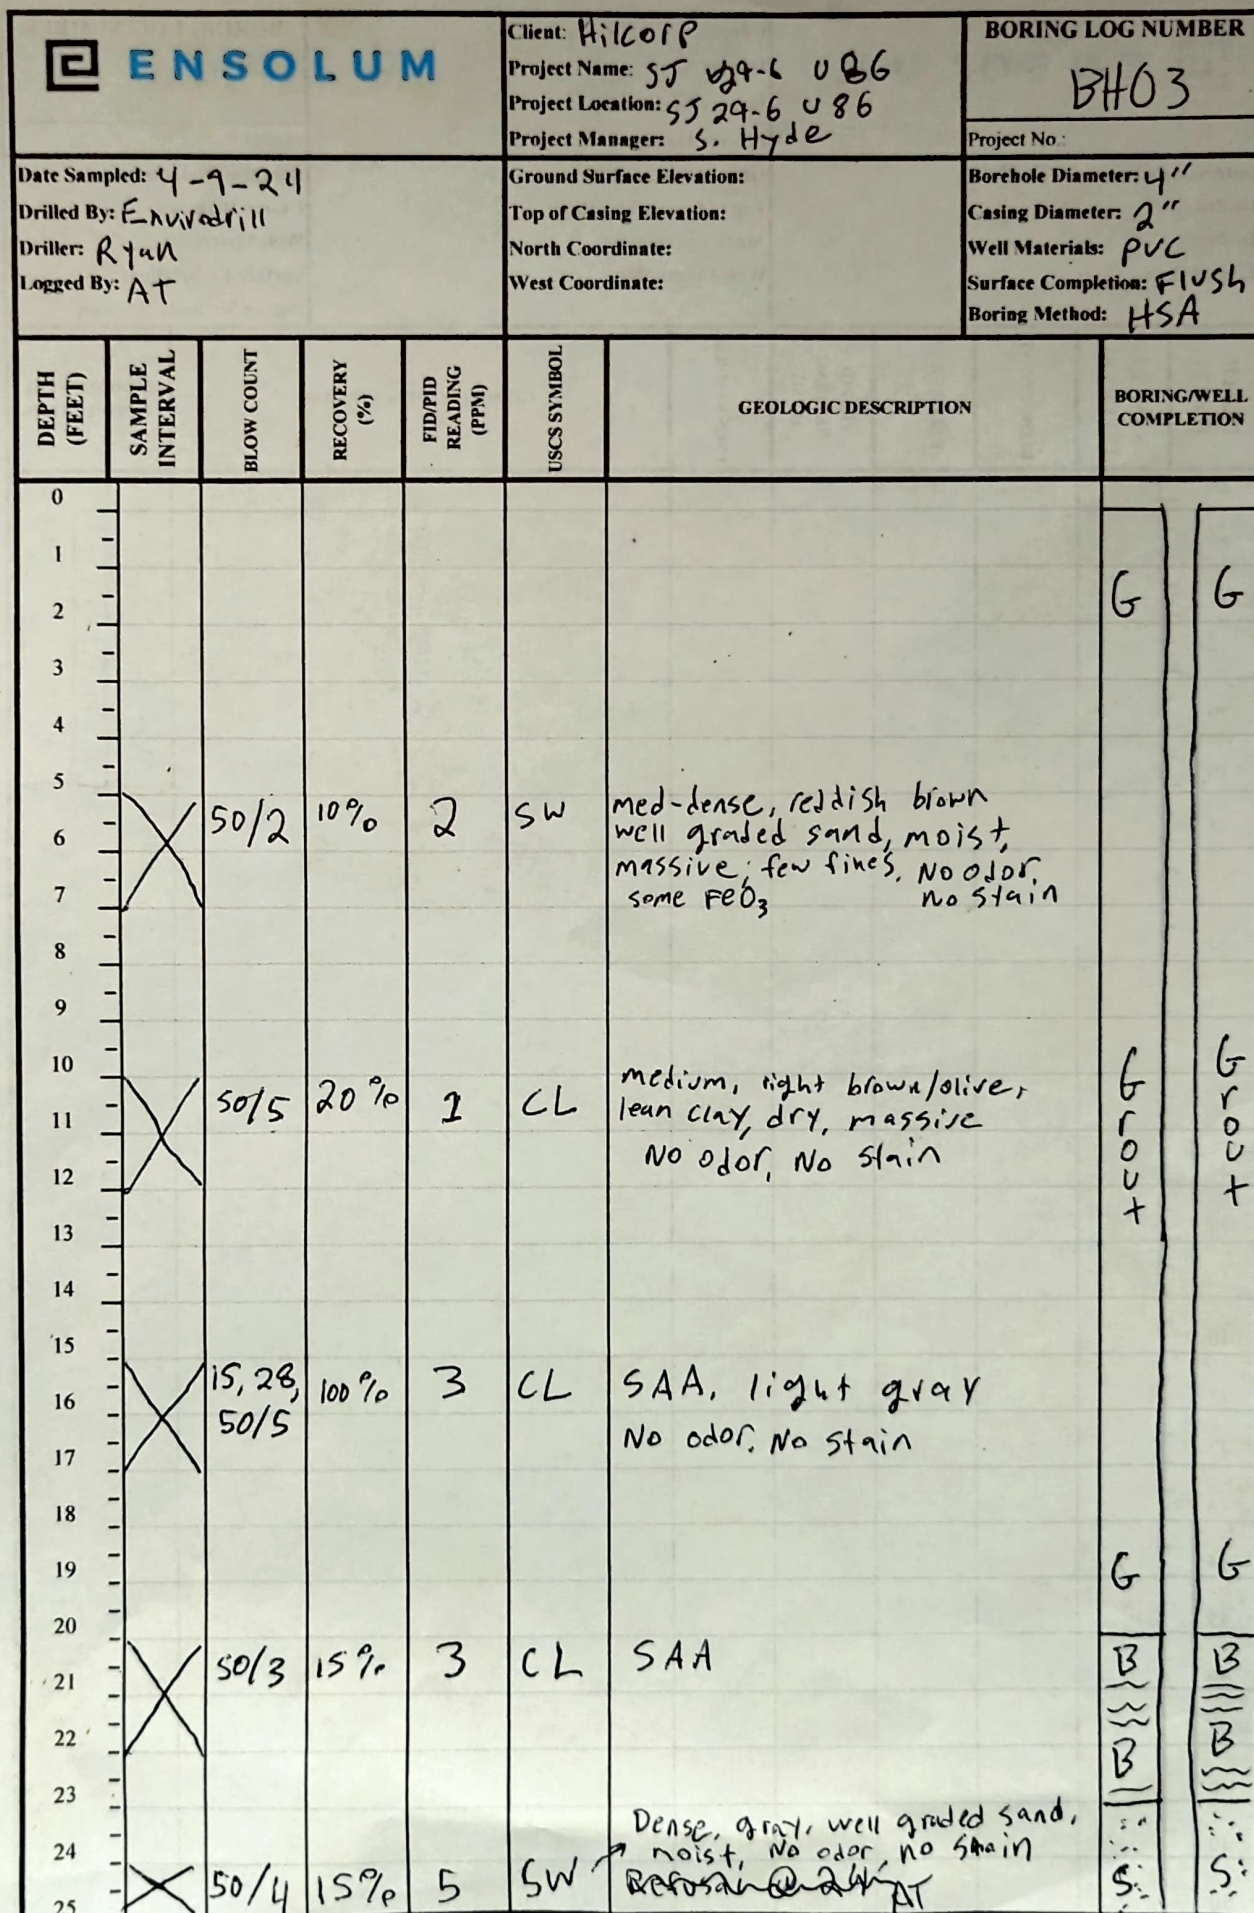 ENSOLUM
Client: Hilcorp
Project Name: SJ 29-6 U 86
Project Location: SJ 29-6 U 86
Project Manager: S. Hyde
BORING LOG NUMBER
BH03
Project No.:
Date Sampled: 4-9-24
Drilled By: Envirodrill
Driller: Ryan
Logged By: AT
Ground Surface Elevation:
Top of Casing Elevation:
North Coordinate:
West Coordinate:
Borehole Diameter: 4"
Casing Diameter: 2"
Well Materials: PVC
Surface Completion: Flush
Boring Method: HSA
DEPTH (FEET)
SAMPLE INTERVAL
BLOW COUNT
RECOVERY (%)
FID/PID READING (PPM)
USCS SYMBOL
GEOLOGIC DESCRIPTION
BORING/WELL COMPLETION
0
1
G G
2
3
4
5
50/2 10% 2 SW med-dense, reddish brown
well graded sand, moist,
6
massive, few fines, No odor,
some FeO3 no stain
7
8
9
10
50/5 20% 1 CL medium, light brown/olive,
lean clay, dry, massive
11
No odor, No stain
Grout Grout
12
13
14
15
15, 28, 100% 3 CL SAA, light gray
16
50/5 No odor, No stain
17
18
19
G G
20
50/3 15% 3 CL SAA B B
21
22
B B
23
Dense, gray, well graded sand,
24
moist, No odor, no stain
50/4 15% 5 SW Refusal @ 24' AT S S
25